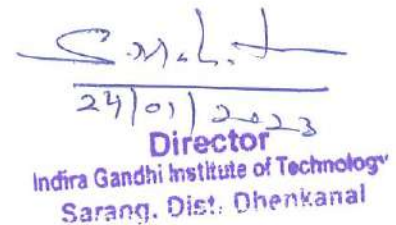 24/01/2023
Director
Indira Gandhi Institute of Technology
Sarang, Dist. Dhenkanal